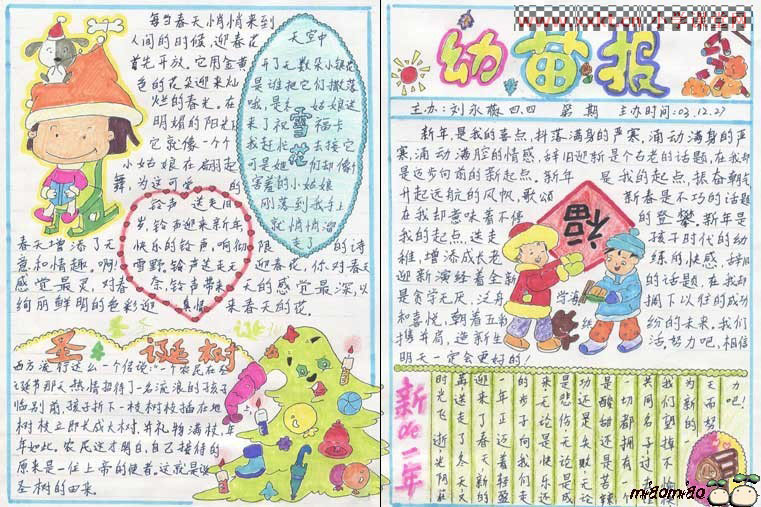 每当春天悄悄来到
人间的时候,迎春花
首先开放。它用金黄
色的花朵迎来灿
烂的春光。在
明媚的阳光
它就像一个
小姑娘在翩翩起
舞,为这可爱 的
春天增添了无 限 的诗
意和情趣。啊! 迎春花,你对春天
感觉最灵,对春 天的感觉最深,以
绚丽鲜明的色彩迎 来春天的花。
天空中
开了无数朵小银花
是谁把它们撒落
哦,是 姑娘送
来了祝 福卡
我赶忙 去接它
可是她 们却像个
害羞的小姑娘
刚落到我手上
就悄悄溜
走了
雪花
铃声 送走旧
岁,铃声迎来新年
快乐的铃声,响彻
雪野.铃声送走无
奈,铃声带来
真情
圣诞树
西方流行这么一个传说:一个农民在圣
诞节那天热情招待了一名流浪的孩子
临别前,孩子折下一枝树枝插在地
树枝立即长成大树,并礼物满枝,年
年如此。农民这才明白,自己接待的
原来是一位上帝的使者,这就是圣
圣树的由来。
幼苗报
主办:刘永薇 四.四 第 期 主办时间:03.12.27
新年是我的喜点,抖落满身的严寒,涌动满身的严
寒,涌动满腔的情感,辞旧迎新是个古老的话题,在我却
是迈步向前的新起点,新年 是我的起点,振奋朝气
升起远航的风帆,歌颂 新春是不朽的话题
在我却意味着不停 的登攀。新年是
我的起点,送走 孩子时代的幼
稚,增添成长老 练的快感,辞旧
迎新演绎着全新 的话题,在我却
是贪学无厌,泛舟 学海 捆下以往的成功
和喜悦,朝着五彩 缤 纷的未来。我们
携并肩,迎新生 活努力吧,相信
明天一定会更好的!
福
新de一年
时光飞逝,光阴
再送走了冬天又
迎来了春天,新的
一年正迈着轻盈
的步子向我们走
来,无论是快乐还
是悲伤无论是成
功还是失败无论
是酸甜还是苦辣
一切都拥有一个
共同名子过
我们望掉不
为新的
天而努
力吧!
miaomiao